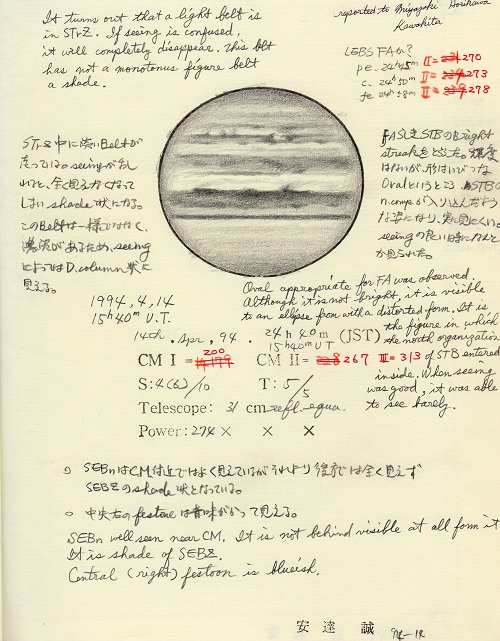 It turns out that a light belt is
in STrZ. If seeing is confused,
it will completely disappear. This blt
has not a monotonus figure belt
a shade.
reported to Miyazaki Horikawa
Kawakita
LEBS FAか?
pe. 24h45m II=231270
c. 24h50m II=273
fe 24h58m II=278
STrZ中に淡いBeltが
走っている。seeingが乱
れると、全く見えなくなって
しまいshade状になる。
このBeltは一様ではなく、
濃淡があるため、seeing
によってはD.column状に
見える。
FASLをSTBのBright
streakをとらえた。輝度
はないが、形はいびつな
Ovalというところ。STBの
n.comp.が入り込んだよう
な姿になり、実に見にくい。
seeingの良い時になんと
か見られた。
1994,4,14
15h40m U.T.
Oval appropriate for FA was observed.
Although it is not bright, it is visible
to an ellipse from with a distorted form. It is
the figure in which
the north organization
of STB entered
inside. When seeing
was good, it was able
to see barely.
14th. Apr, 94. 24h40m (JST)
15h40m UT
CM I = 200 CM II= 267 III=313
S:4(6)/10 T:5/5
Telescope: 31 cm refl. equa.
Power: 274 × × ×
○ SEBnはCM付近ではよく見えているがそれより後方では全く見えず
SEBZのshade状となっている。
○ 中央右のfestoonは青味がかって見える。
SEBn well seen near CM. It is not behind visible at all form it
It is shade of SEBZ.
Central (right) festoon is blueish.
安達 誠
94-12